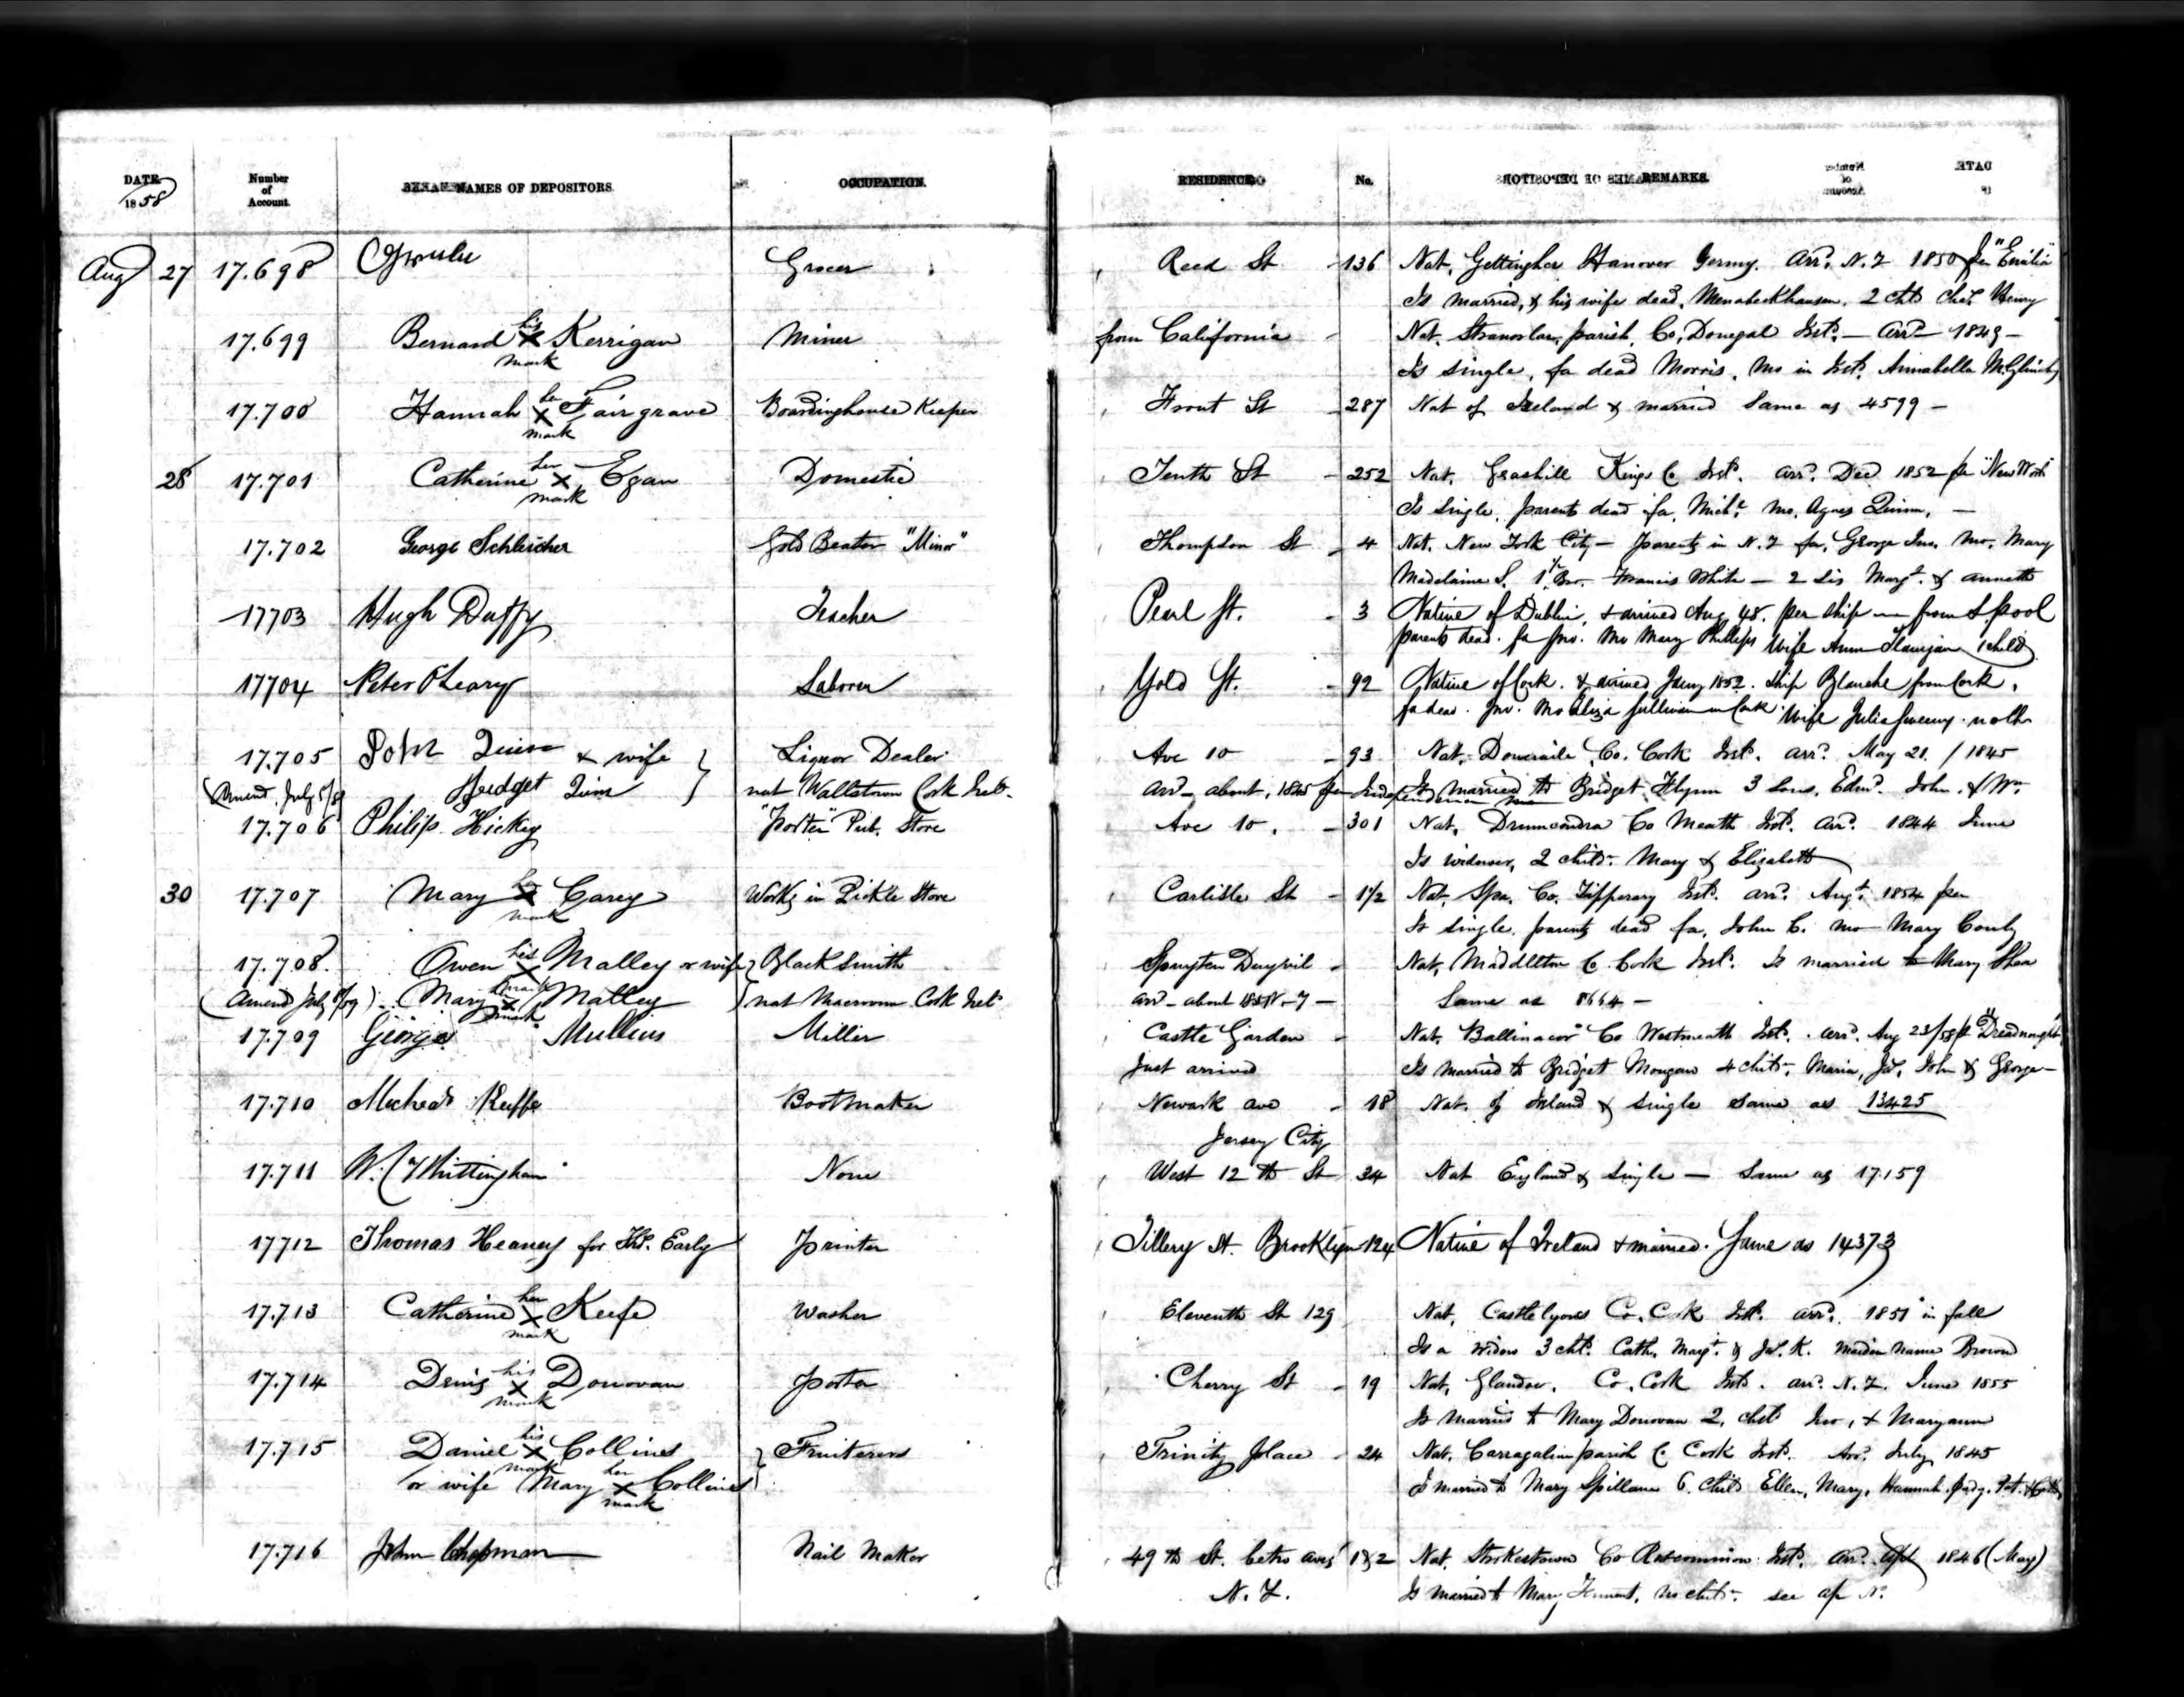 DATE Number NAMES OF DEPOSITORS. OCCUPATION. RESIDENCE No. REMARKS.
1858 of
Account.
Aug 27 17.698 Grocer Reed St 136 Nat. Hanover Germy. Arrd. N.Y 1850 per "Emilia"
Is married, & his wife dead, 2 chts Chas Henry
17.699 Bernard his X mark Kerrigan Miner from California Nat. Stranorlar parish, Co, Donegal Ireld. — Arrd — 1849 —
Is single, fa dead Morris, mo in Ireld. Annabella McGlinchy
17.700 Hannah her X mark Fairgrave Boardinghouse Keeper Front St 287 Nat of Ireland & married Same as 4599 —
28 17.701 Catherine her X mark Egan Domestic Tenth St 252 Nat. Geashill Kings Co Ireld. arrd. Dec 1852 per "New York"
Is single, parents dead fa, Michl. mo, Agnes Quinn, —
17.702 George Schleicher Gold Beater "Minor" Thompson St 4 Nat. New York City — parents in N.Y fa, George Senr. Mo. Mary
Madelaine S. 1 Bro. Francis White — 2 Sis Margt. & annett
17703 Hugh Duffy Teacher Pearl St. 3 Native of Dublin, & arrived Aug 48. per ship — from L.pool
parents dead. fa Jno. Mo Mary Phillips Wife Ann Flanigan 1 child
17704 Peter O'Leary Laborer Gold St. 92 Native of Cork. & arrived Jany 1852. Ship Blanche from Cork.
fa dead. Jno. Mo Eliza Sullivan in Cark. Wife Julia Sweeny. no ch
17.705 John Quinn & wife } Liquor Dealer Ave 10 93 Nat. Doneraile, Co. Cork Ireld. arrd. May 21. / 1845
(Amend. July 5/59 Bridget Quinn } nat Wallstown Cork Ireld. arr — about, 1845 per Independence Is married to Bridget Flynn 3 sons, Edmd. John, & Wm.
17.706 Philip Hickey "Porter" Pub. Store Ave 10, 301 Nat, Drumcondra Co Meath Ireld. arrd. 1844 June
Is widower, 2 childr. Mary & Elizabeth
30 17.707 Mary her X mark Carey Works in Pickle Store Carlisle St 1½ Nat, Spa, Co. Tipperary Ireld. arrd. Augt. 1854 per
Is single, parents dead fa, John C. mo Mary
17.708. Owen his X mark Malley or wife } Black Smith Spuyten Duyvil Nat, Middleton Co. Cork Ireld. Is married to Mary Shea
(Amend July 8/59) Mary her X mark Malley } nat Macroom Cork Ireld arr — about Same as 8664 —
17.709 George Mullins Miller Castle Garden Nat, Ballinacor Co Westmeath Ireld. arrd. Aug 23/58 pr "Dreadnought"
Just arrived Is married to Bridget Mongan 4 childr. Maria, Jas. John & George —
17.710 Micheal Keeffe Bootmaker Newark ave 18 Nat. of Ireland & single same as 13425
Jersey City
17.711 W. Whittingham None West 12 th St 34 Nat England & single — Same as 17.159
17712 Thomas Heaney for Thos. Early Printer Tillery St. Brooklyn 124 Native of Ireland & married. Same as 14373
17.713 Catherine her X mark Keefe Washer Eleventh St 129 Nat, Castlelyons Co. Cork Ireld. arrd. 1851 in fall
Is a widow 3 chld. Cath. Margt. & Jas. K. Maiden name Brown
17.714 Denis his X mark Donovan Porter Cherry St 19 Nat, Glandor. Co. Cork Ireld. arrd. N.Y. June 1855
Is married to Mary Donovan 2, chld Jno, & Maryann
17.715 Daniel his X mark Collins } Fruiterers Trinity Place 24 Nat. Carragaline parish Co Cork Ireld. Arrd. July 1845
or wife Mary her X mark Collins } Is married to Mary Spillane 6. child Ellen, Mary, Hannah, Judy, Pat.
17.716 John Chapman Nail Maker 49 th St. betn aves 1 & 2 Nat. Strokestown Co Roscommon Ireld. arrd. Apl 1846 (May)
N.Y. Is married to Mary no childr. see af No.